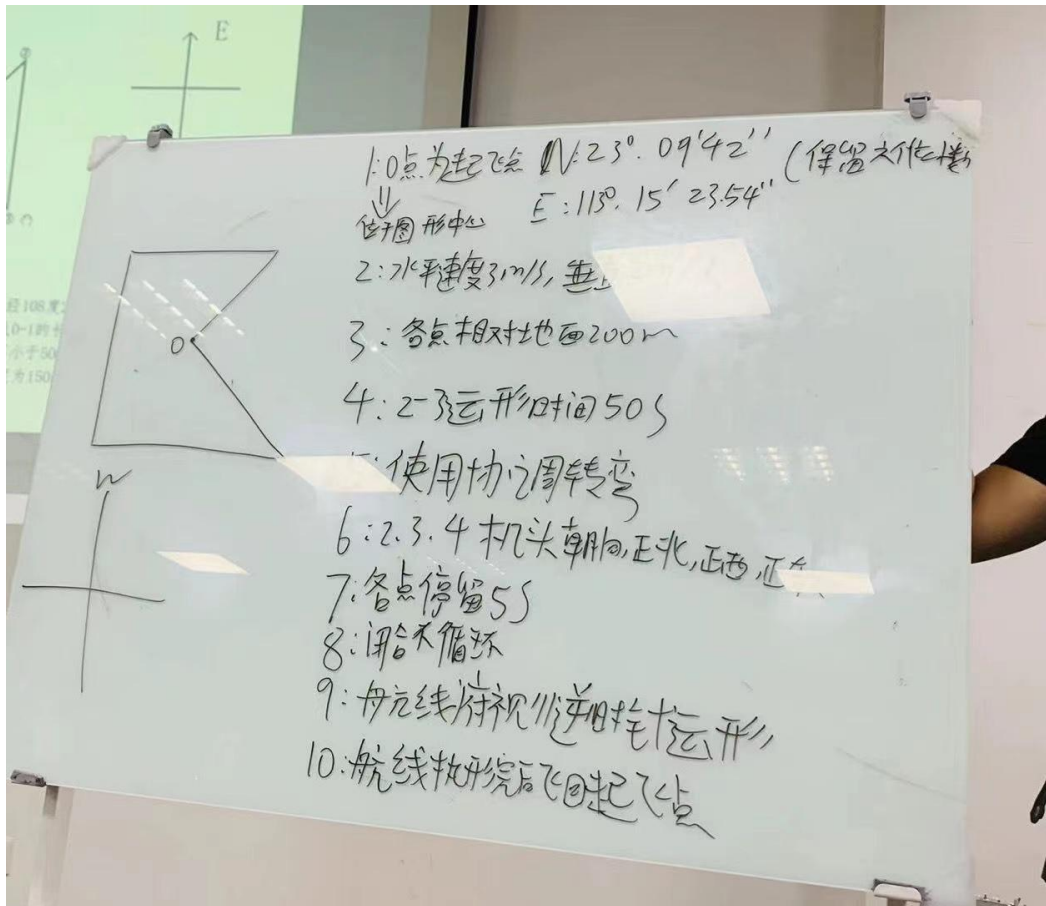 E
经108度
0-1的
小于50
为150
1:0点为起飞点 N:23°.09'42'' (保留六位小数
E:113°.15'23.54''
位于图形中心
2:水平速度3m/s,垂直
3:各点相对地面200m
0
4:2-3运形时间50S
5:使用协调转弯
N
6:2.3.4机头朝向,正北,正西,正
7:各点停留5S
8:闭合不循环
9:航线俯视逆时针运形
10:航线执形完后飞回起飞点